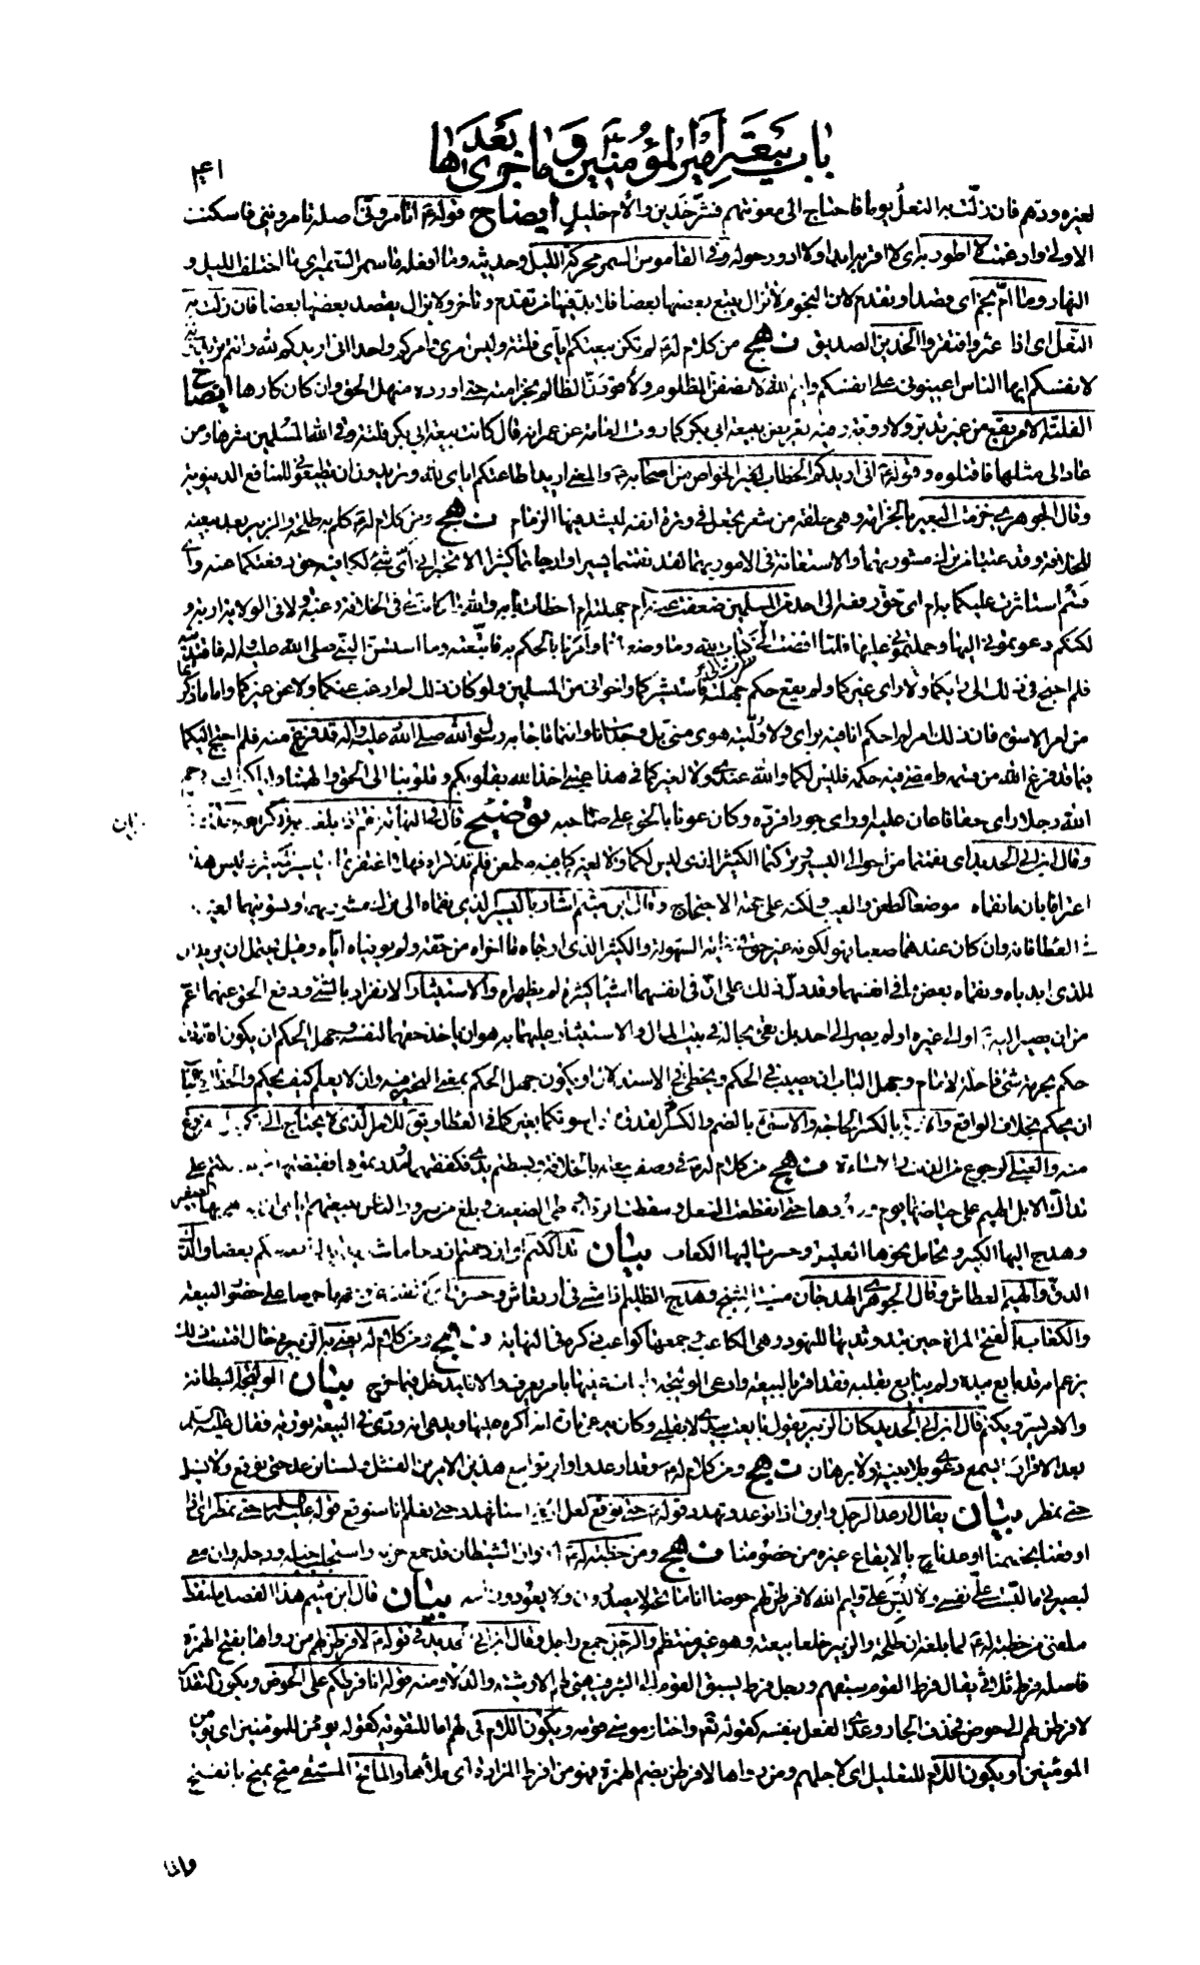 باب بيعة أمير المؤمنين وما جرى بعدها
٤١
لغيره ودهم فان زلّت به النعل يوما فاحتاج الى معونتهم فشرّ خدين والأم خليل ايضاح قوله ع اتامروني اصله تامرونني فاسكنت
الاولى وادغمت لا اطور به اى لا اقربه ابدا ولا ادور حوله وفى القاموس السمر محركة الليل وحديثه وما افعله ما سمر السمير اى ما اختلف الليل و
النهار وما امّ نجم اى قصد او تقدم لان النجوم لا تزال يتبع بعضها بعضا فلا بد فيها من تقدم وتاخر ولا يزال يقصد بعضها بعضا فان زلت به
النعل اى اذا عثر وافتقر والخدين الصديق نهج من كلام له ع لم تكن بيعتكم اياى فلتة وليس امرى وامركم واحدا انى اريدكم لله وانتم تريدوننى
لانفسكم ايها الناس اعينونى على انفسكم وايم الله لانصفن المظلوم ولاقودن الظالم بخزامته حتى اورده منهل الحق وان كان كارها ايضاح
الفلتة الامر يقع من غير تدبر ولا روية وفيه تعريض ببيعة ابى بكر كما روت العامة عن عمر انه قال كانت بيعة ابى بكر فلتة وقى الله المسلمين شرها ومن
عاد الى مثلها فاقتلوه وقوله ع انى اريدكم الخطاب لغير الخواص من اصحابه ع والمعنى اريد اطاعتكم اياى لله وتريدون ان تطيعونى للمنافع الدنيوية
وقال الجوهرى خزمت البعير بالخزامة وهى حلقة من شعر يجعل فى وترة انفه ليشد فيها الزمام نهج ومن كلام له ع كلم به طلحة والزبير بعد بيعته
بالخلافة وقد عتبا من ترك مشورتهما والاستعانة فى الامور بهما لقد نقمتما يسيرا وارجاتما كثيرا الا تخبرانى اىّ شىء لكما فيه حق دفعتكما عنه واى
قسم استاثرت عليكما به ام اى حق رفعه الى احد من المسلمين ضعفت عنه ام جهلته ام اخطات بابه والله ما كانت لى فى الخلافة رغبة ولا فى الولاية اربة و
لكنكم دعوتمونى اليها وحملتمونى عليها فلما افضت الى نظرت الى كتاب الله وما وضع لنا وامرنا بالحكم به فاتبعته وما استسن النبى صلى الله عليه وآله فاقتديته
فلم احتج فى ذلك الى رايكما ولا راى غيركما ولم يقع حكم جهلته فاستشيركما واخوانى من المسلمين ولو كان ذلك لم ارغب عنكما ولا عن غيركما واما ما ذكرتما
من امر الاسوة فان ذلك امر لم احكم انا فيه برايى ولا وليته هوى منى بل وجدت انا وانتما ما جاء به رسول الله صلى الله عليه وآله قد فرغ منه فلم احتج اليكما
فيما قد فرغ الله من قسمه وامضى فيه حكمه فليس لكما والله عندى ولا لغيركما فى هذا عتبى اخذ الله بقلوبكم وقلوبنا الى الحق والهمنا واياكم الصبر رحم
الله رجلا راى حقا فاعان عليه او راى جورا فرده وكان عونا بالحق على صاحبه توضيح قال فى النهاية
وقال ابن ابى الحديد اى نقمتما من احوالى اليسير وتركتما الكثير الذى ليس لكما ولا لغيركما فيه مطعن فلم تذكراه فهلا اغتفرتما اليسير للكثير وليس هذا
اعترافا بان ما نقماه موضع الطعن والعيب ولكنه على جهة الاحتجاج وقال ابن ميثم اشار باليسير الذى نقماه الى ترك مشورتهما وتسويتهما لغيرهما
فى العطا فانه وان كان عندهما صعبا فهو لكونه غير حق فى غاية السهولة والكثير الذى ارجاه ما اخراه من حقه ولم يوفياه اياه وقيل يحتمل ان يريد ان
الذى ابدياه ونقماه بعض ما فى انفسهما وقد دل ذلك على ان فى انفسهما اشياء كثيرة لم يظهراه والاستيثار الانفراد بالشىء ودفع الحق عنهما اعم
من ان يصير اليه ع او الى غيره او لم يصر الى احد بل بقى بحاله فى بيت المال والاستيثار عليهما به هو ان ياخذ حقهما لنفسه وجهل الحكم ان يكون الله قد
حكم بحرمة شىء فاحله الامام وجهل الباب ان يصيب فى الحكم ويخطئ فى الاستدلال او يكون جهل الحكم بمعنى التحير فيه وان لا يعلم كيف يحكم والخطاء فيه
ان يحكم بخلاف الواقع والاربة بالكسر الحاجة والاسوة بالضم والكسر القدوة
منه والعتبى الرجوع من الذنب والاساءة نهج من كلام له ع فى وصف بيعته بالخلافة وبسطتم يدى فكففتها ومددتموها فقبضتها ثم تداككتم على
تداك الابل الهيم على حياضها يوم ورودها حتى انقطعت النعل وسقطت الرداء ووطئ الضعيف وبلغ من سرور الناس ببيعتهم اياى ان ابتهج بها الصغير
وهدج اليها الكبير وتحامل نحوها العليل وحسرت اليها الكعاب بيان تداككتم اى ازدحمتم ازدحاما بعضكم بعضا والدك
الدق والهيم العطاش وقال الجوهرى الهدجان مشية الشيخ وهدج الظليم اذا مشى فى ارتعاش وحسرت اى كشفت عن وجهها حرصا على حضور البيعة
والكعاب بالفتح المراة حين يبدو ثديها للنهود وهى الكاعب وجمعها كواعب ذكره فى النهاية نهج ومن كلام له ع يعنى به الزبير فى حال اقتضت ذلك
يزعم انه قد بايع بيده ولم يبايع بقلبه فقد اقر بالبيعة وادعى الوليجة فليات عليها بامر يعرف والا فليدخل فيما خرج منه بيان الوليجة البطانة
والامر يسر ويكتم قال ابن ابى الحديد كان الزبير يقول بايعت بيدى لا بقلبى وكان يدعى تارة انه اكره عليها ويدعى انه ورى فى البيعة تورية فقال عليه السلم
بعد الاقرار لا يسمع دعوى بلا بينة ولا برهان نهج ومن كلام له ع وقد ارعدوا وابرقوا ومع هذين الامرين الفشل ولسنا نرعد حتى نوقع ولا نسيل
حتى نمطر بيان يقال ارعد الرجل وابرق اذا توعد وتهدد قوله ع حتى نوقع لعل المعنى لسنا نهدد حتى نعلم انا سنوقع قوله عليه السلم حتى نمطر اى اذا
اوقعنا بخصمنا اوعدنا ح بالايقاع غيره من خصومنا نهج ومن خطبة له ع الا وان الشيطان قد جمع حزبه واستجلب خيله ورجله وان معى
لبصيرتى ما لبّست على نفسى ولا لُبّس على وايم الله لافرطن لهم حوضا انا ماتحه لا يصدرون عنه ولا يعودون اليه بيان قال ابن ميثم هذا الفصل ملتقط
ملفق من خطبة له ع لما بلغه ان طلحة والزبير خلعا بيعته وهو غير منتظم والرجل جمع راجل وقال ابن ابى الحديد فى قوله ع لافرطن لهم من رواها بفتح الهمزة
فاصله فرط ثلاثى يقال فرط القوم سبقهم ورجل فرط يسبق القوم الى البئر فيهيئ لهم الارشية والدلاء ومنه قوله انا فرطكم على الحوض ويكون التقدير
لافرطن لهم الى حوض فحذف الجار وعدى الفعل بنفسه كقوله تعالى واختار موسى قومه ويكون اللام فى لهم اما للتقوية كقوله يؤمن للمؤمنين اى يؤمن
المؤمنين او يكون اللام للتعليل اى لاجلهم ومن رواها لافرطن بضم الهمزة فهو من افرط المزادة اى ملأها والماتح المستقى متح يمتح بالفتح
واذا